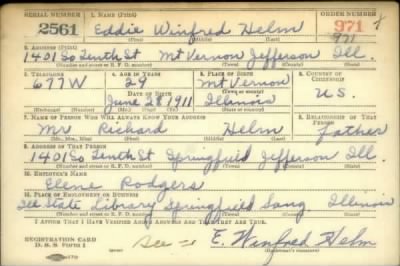 SERIAL NUMBER 1. NAME (Print) ORDER NUMBER
2561 Eddie Winfred Helm 971
(First) (Middle) (Last)
2. ADDRESS (Print)
1401 So Tenth St Mt Vernon Jefferson Ill.
(Number and street or R. F. D. number) (Town) (County) (State)
3. TELEPHONE 4. AGE IN YEARS 5. PLACE OF BIRTH 6. COUNTRY OF CITIZENSHIP
677W 29 Mt Vernon
DATE OF BIRTH (Town or county)
June 28 1911 Illinois U.S.
(Mo.) (Day) (Yr.) (State or country)
7. NAME OF PERSON WHO WILL ALWAYS KNOW YOUR ADDRESS 8. RELATIONSHIP OF THAT PERSON
Mr Richard Helm Father
(Mr., Mrs., Miss) (First) (Middle) (Last)
9. ADDRESS OF THAT PERSON
1401 So Tenth St Springfield Jefferson Ill.
(Number and street or R. F. D. number) (Town) (County) (State)
10. EMPLOYER'S NAME
Elene Rodgers
11. PLACE OF EMPLOYMENT OR BUSINESS
Ill State Library Springfield Sang Illinois
(Number and street or R. F. D. number) (Town) (County) (State)
I AFFIRM THAT I HAVE VERIFIED ABOVE ANSWERS AND THAT THEY ARE TRUE.
REGISTRATION CARD
D. S. S. FORM 1 E. Winfred Helm
(Registrant's signature)